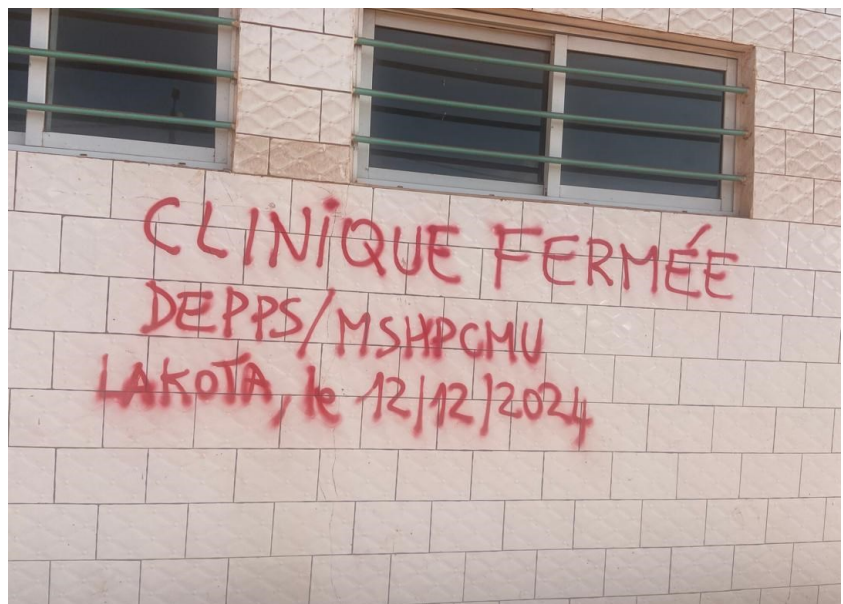 CLINIQUE FERMÉE
DEPPS/MSHPCMU
LAKOTA, le 12/12/2024